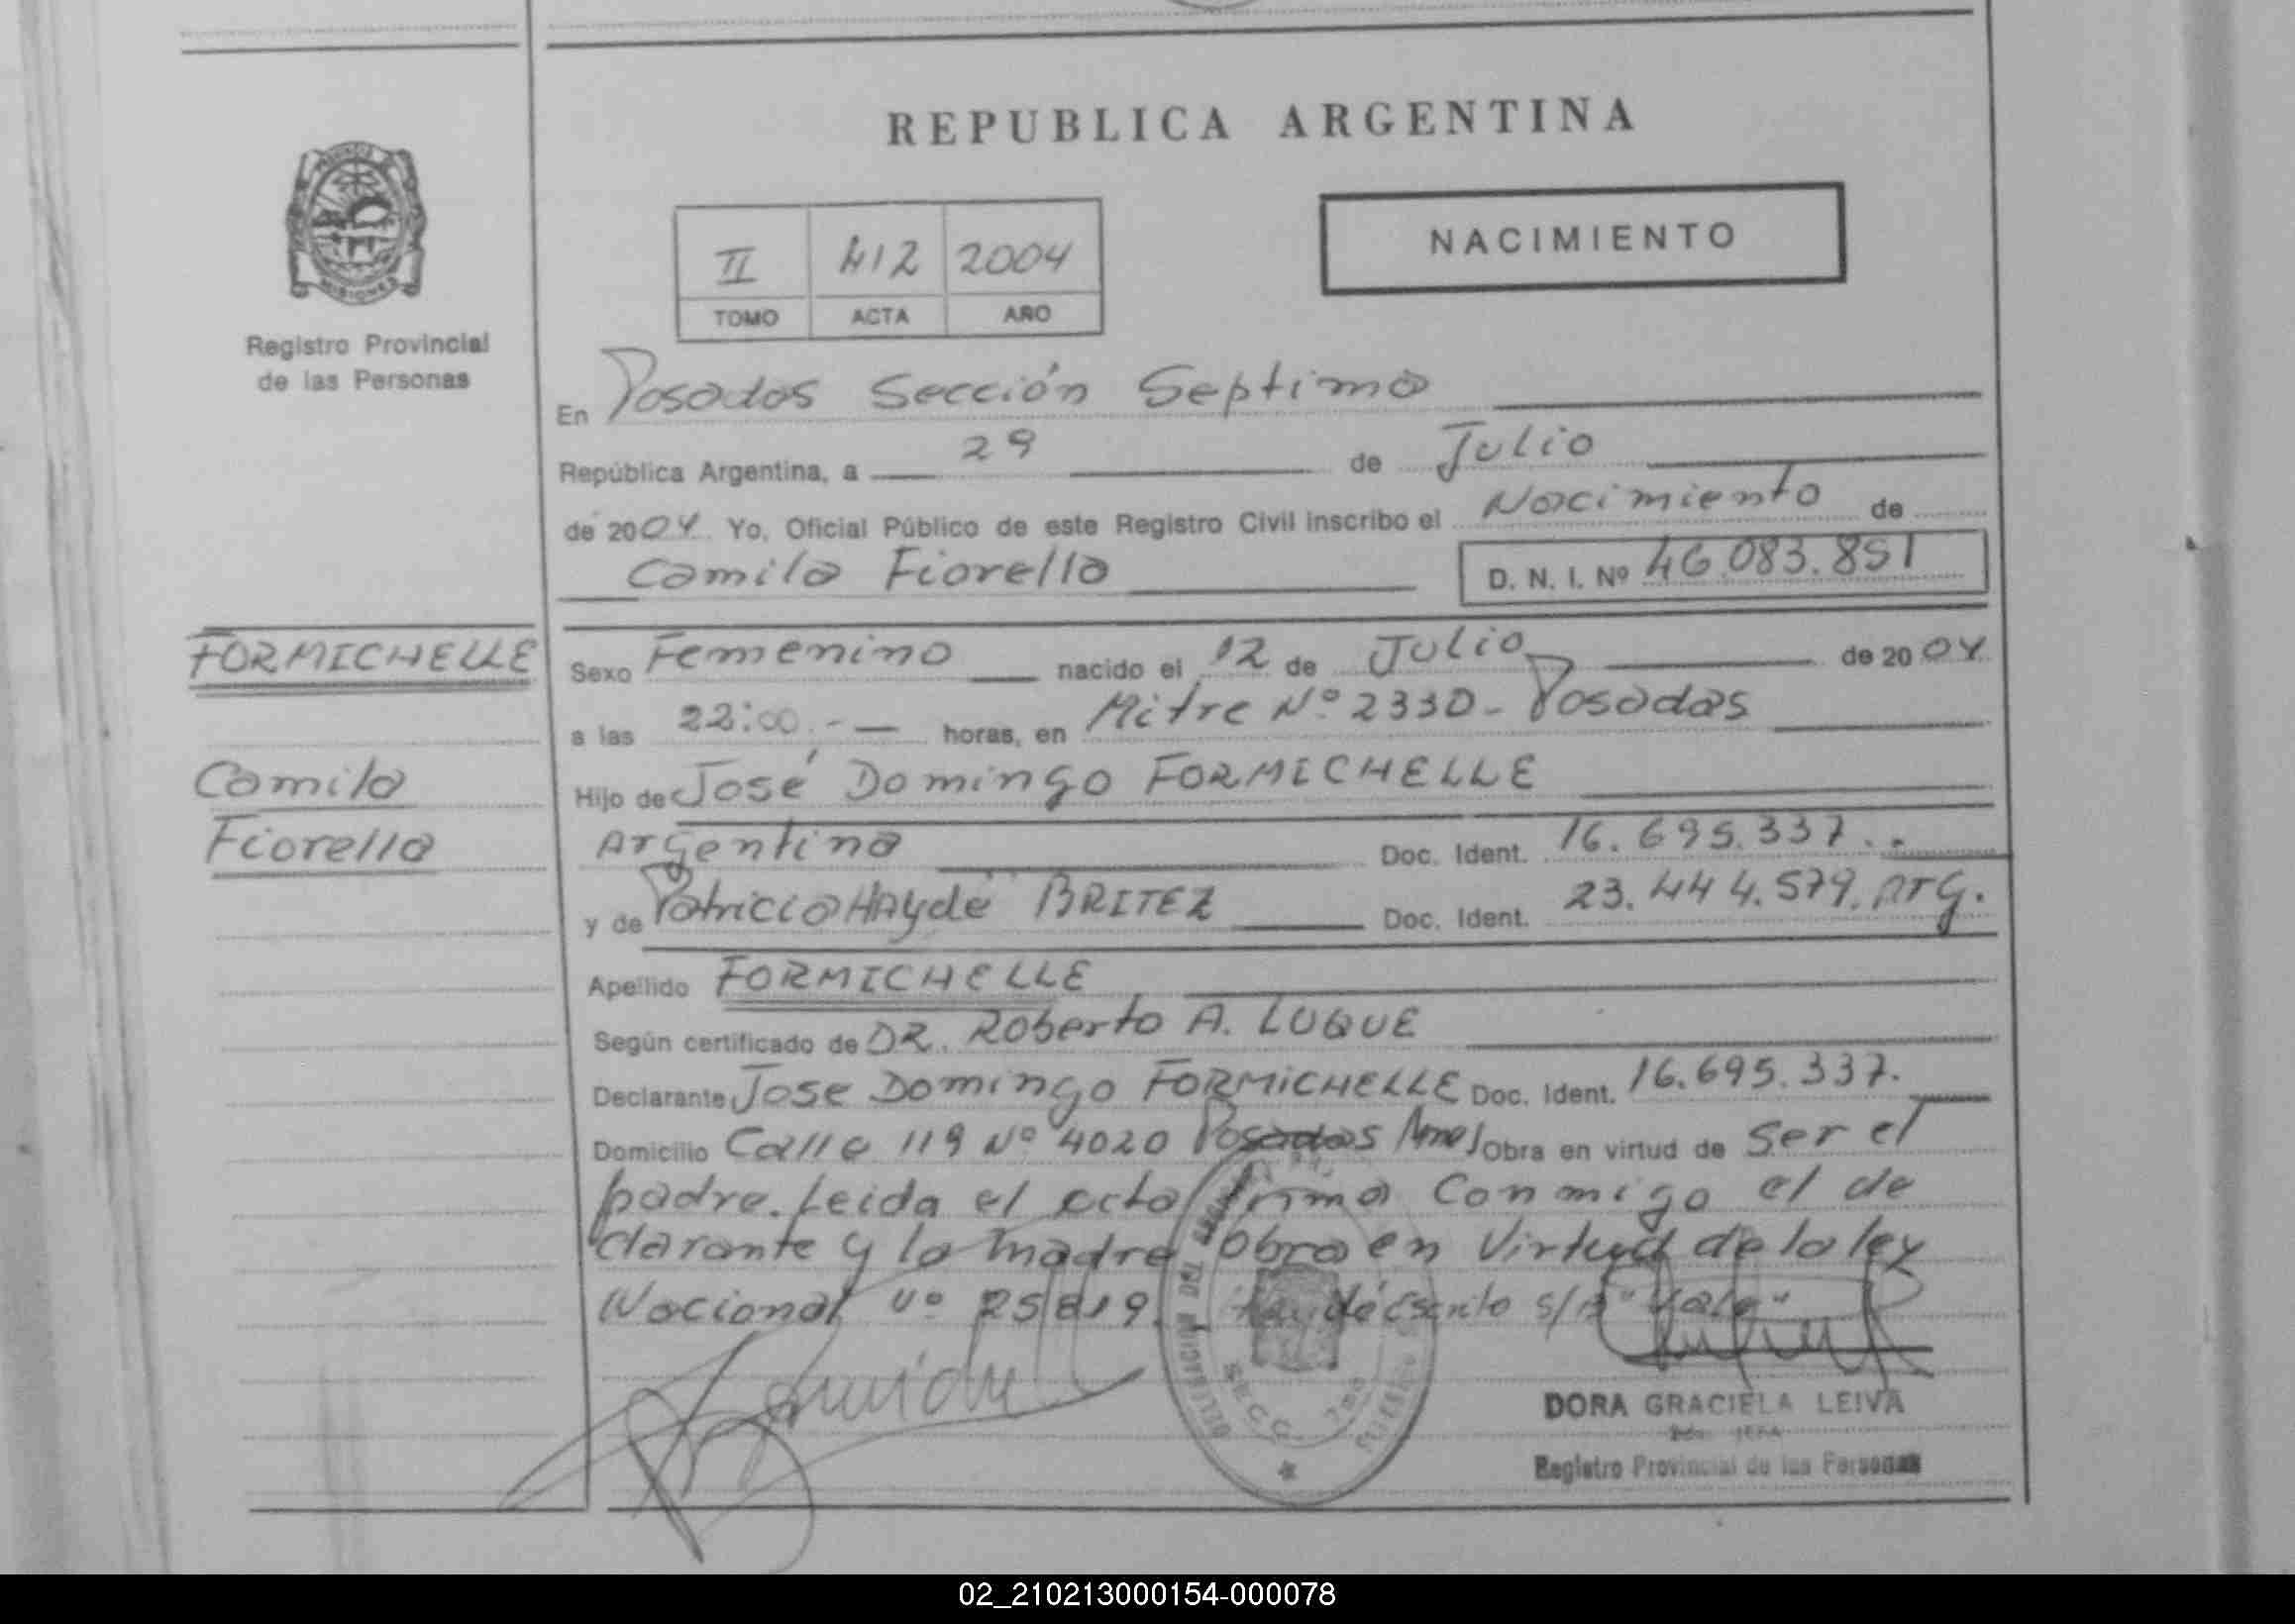 REPUBLICA ARGENTINA
NACIMIENTO
II 412 2004
TOMO ACTA AÑO
MISIONES
Registro Provincial
de las Personas
En Posadas Sección Septima
República Argentina, a 29 de Julio
de 2004 Yo, Oficial Público de este Registro Civil inscribo el Nacimiento de
Camila Fiorella D. N. I. Nº 46.083.851
FORMICHELLE
Camila
Fiorella
Sexo Femenino nacido el 12 de Julio de 2004
a las 22:00.- horas, en Mitre Nº 2330 - Posadas
Hijo de José Domingo FORMICHELLE
Argentino Doc. Ident. 16.695.337..
y de Patricia HAydé BRITEZ Doc. Ident. 23.444.579. Arg.
Apellido FORMICHELLE
Según certificado de DR. Roberto A. LUQUE
Declarante Jose Domingo FORMICHELLE Doc. Ident. 16.695.337.
Domicilio Calle 119 Nº 4020 Posadas Mnes Obra en virtud de Ser el
padre. Leida el acta firma Conmigo el de
clarante y la madre obra en Virtud de la ley
Nacional Nº 25819. Escrito s/r "Vale"
SECC. 7ma
DORA GRACIELA LEIVA
JEFA
Registro Provincial de las Personas
02_210213000154-000078